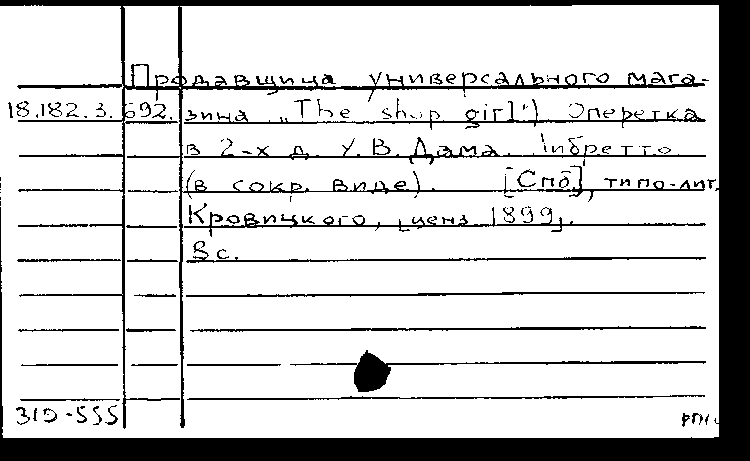 Продавщица универсального мага-
18.182.3.692. зина „The shop girl") Оперетка
в 2-х д. У. В. Дама. Либретто
(в сокр. виде). [Спб], типо-лит.
Кровицкого, [ценз 1899].
8с.
310-555